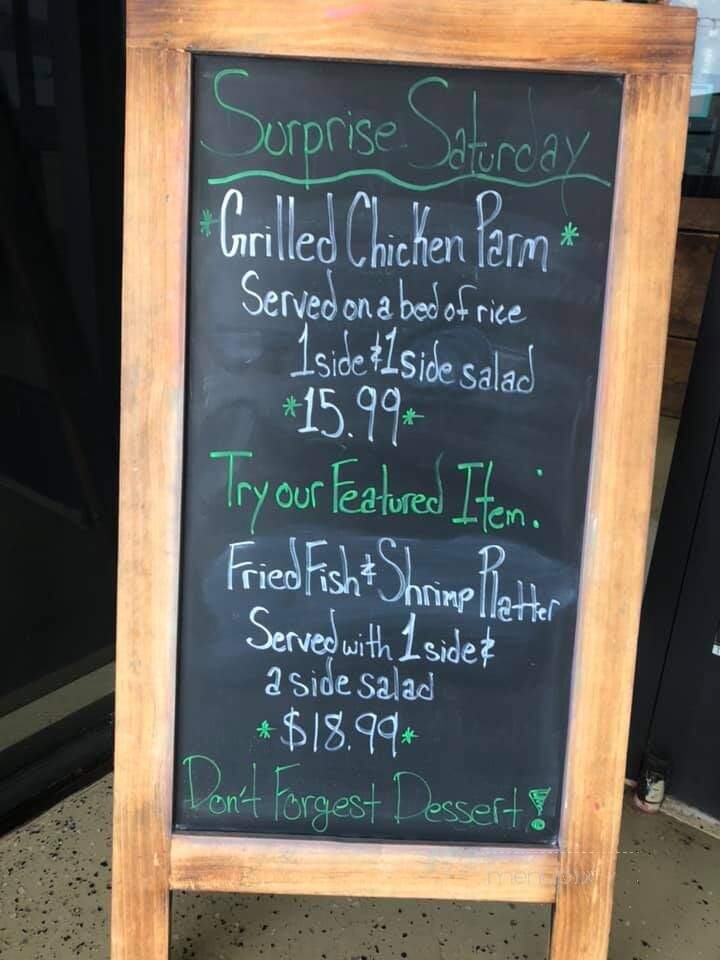 Surprise Saturday
*Grilled Chicken Parm*
Served on a bed of rice
1 side & 1 side salad
*15.99*
Try our Featured Item:
Fried Fish & Shrimp Platter
Served with 1 side &
a side salad
*$18.99*
Don't Forgest Dessert!